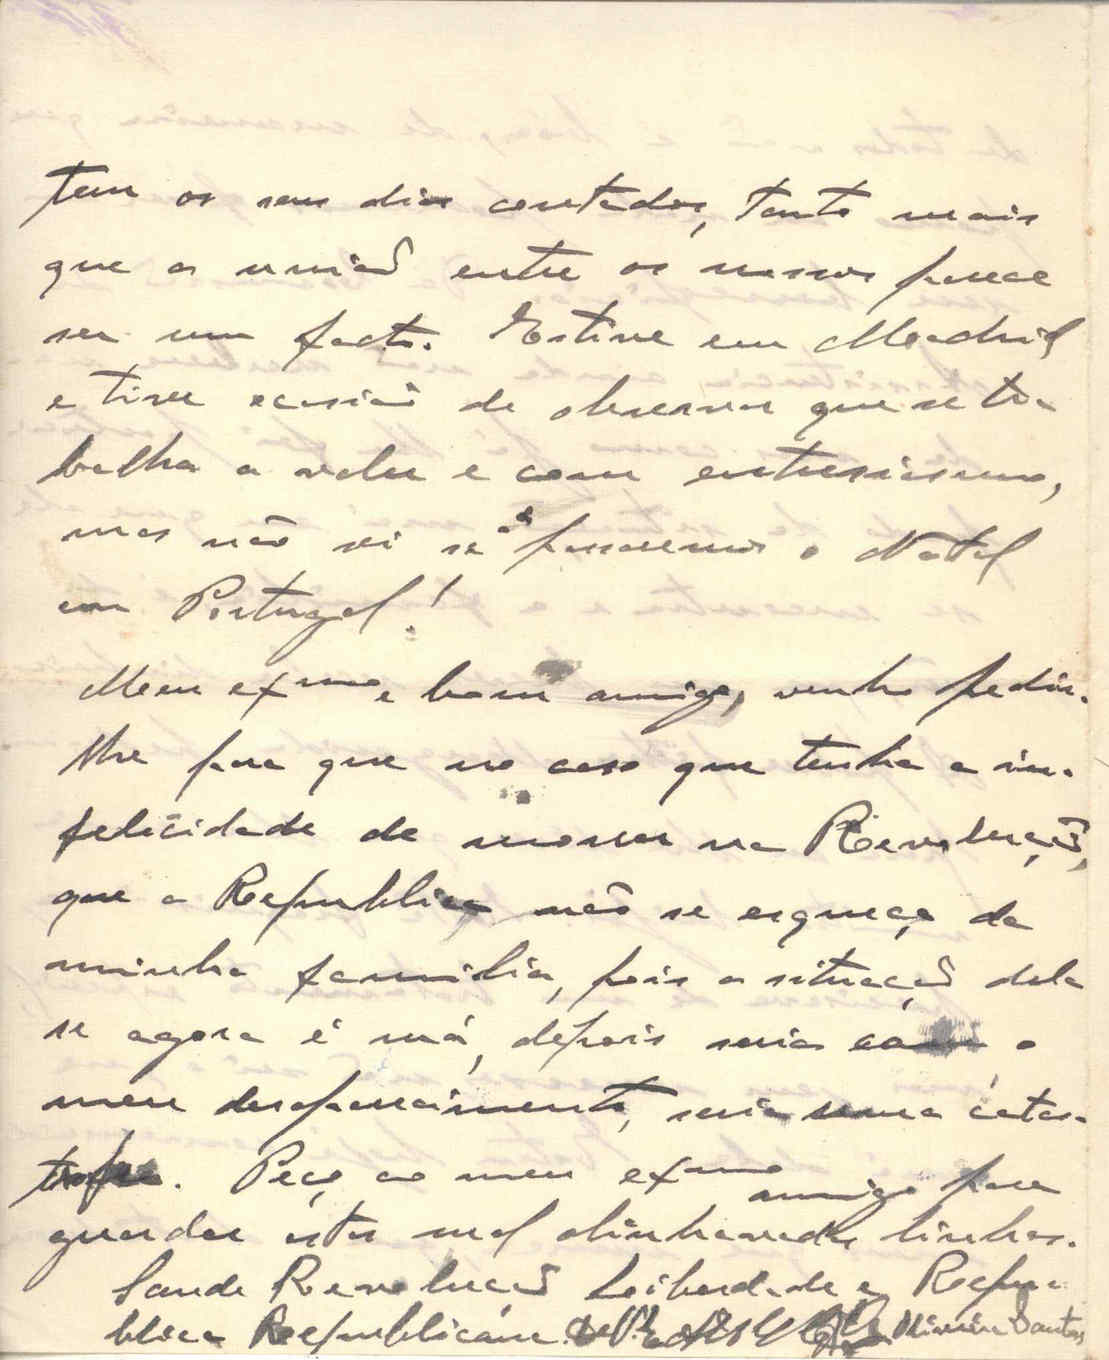 tem os seus dias contados, tanto mais
que a união entre os nossos parece
ser um facto. Estive em Madrid
e tive ocasião de observar que se tra-
balha a valer e com entusiasmo,
mas não sei se passaremos o Natal
em Portugal!
Meu exmo e bom amigo, venho pedir-
lhe para que no caso que tenha a in-
felicidade de morrer na Revolução,
que a Republica não se esqueça da
minha familia, pois a situação dela
se agora é má, depois seria com o
meu desaparecimento, seria uma catas-
trofe. Peço ao meu exmo amigo para
guardar estas mal alinhavadas linhas.
Saude Revolução Leiberdade e Repu-
blica Republicana. Santos